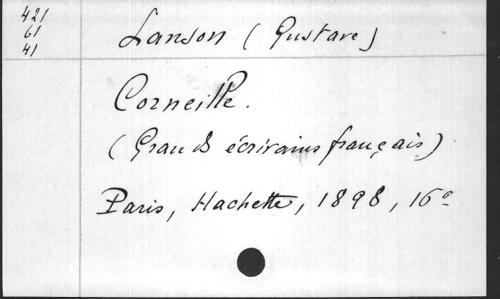 421
61
41
Lanson (Gustave)
Corneille.
(Grands écrivains français)
Paris, Hachette, 1898, 16º